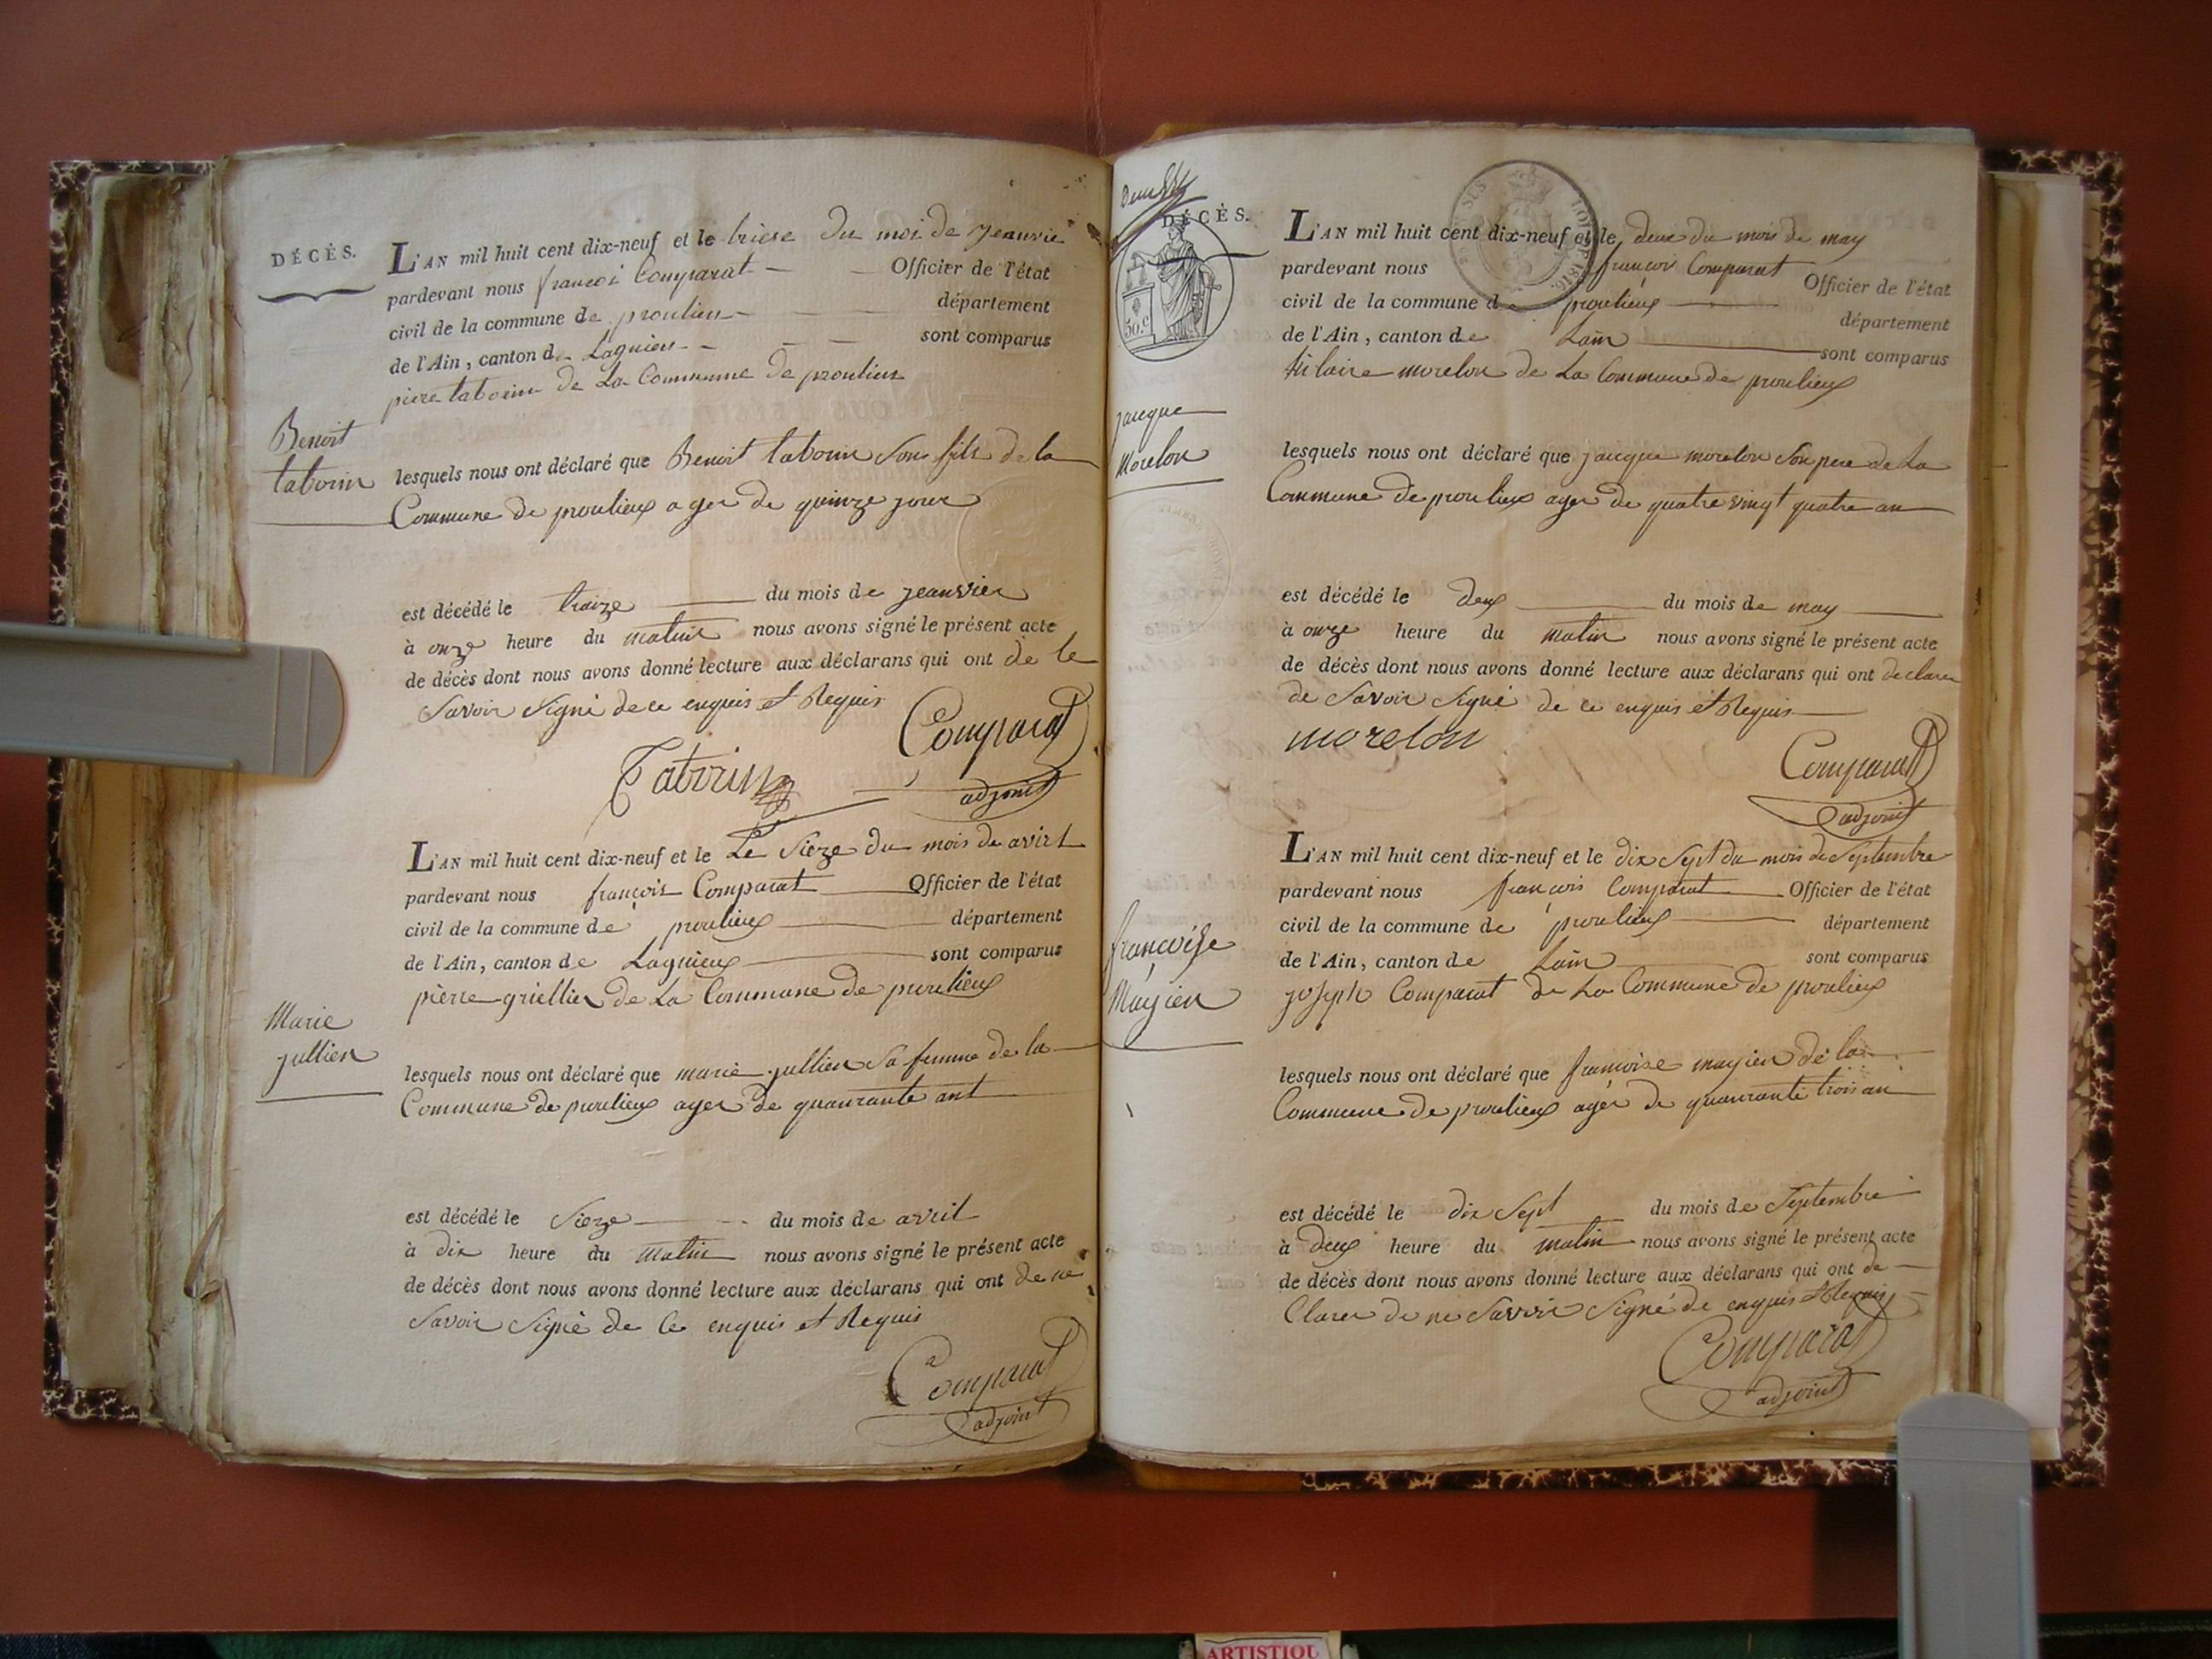 DÉCÈS.
L'AN mil huit cent dix-neuf et le trieze du moi de jeanvie
pardevant nous francoi Comparat Officier de l'état
civil de la commune de proulieu département
de l'Ain, canton de Lagnieu sont comparus
piere taborin de La Commune de proulieu
Benoit
taborin
lesquels nous ont déclaré que Benoit taborin son fils de la
Commune de proulieux ager de quinze jour
est décédé le traize du mois de jeanvier
à onze heure du matin nous avons signé le présent acte
de décès dont nous avons donné lecture aux déclarans qui ont de le
savoir signé de ce enquis et Requis
Comparat
Taborin
adjoint
L'AN mil huit cent dix-neuf et le Le sieze du mois de avirt
pardevant nous françois Comparat Officier de l'état
civil de la commune de proulieux département
de l'Ain, canton de Lagnieux sont comparus
pierre griellier de La Commune de proulieux
Marie
jullien
lesquels nous ont déclaré que marie jullien sa femme de la
Commune de proulieux ager de quaurante ant
est décédé le sieze du mois de avril
à dix heure du matin nous avons signé le présent acte
de décès dont nous avons donné lecture aux déclarans qui ont de ne
savoir signé de Ce enquis et Requis
Comparat
adjoint
DÉCÈS.
50.c
L'AN mil huit cent dix-neuf et le deux du mois de may
pardevant nous françois Comparat Officier de l'état
civil de la commune de proulieux département
de l'Ain, canton de Lain sont comparus
hilaire morelon de La Commune de proulieux
jacque
Morelon
lesquels nous ont déclaré que jacque morelon son pere de La
Commune de proulieux ager de quatre vingt quatre an
est décédé le deux du mois de may
à onze heure du matin nous avons signé le présent acte
de décès dont nous avons donné lecture aux déclarans qui ont declarer
de savoir signé de ce enquis et Requis
morelon
Comparat
adjoint
L'AN mil huit cent dix-neuf et le dix sept du mois de Septembre
pardevant nous françois Comparat Officier de l'état
civil de la commune de proulieux département
de l'Ain, canton de Lain sont comparus
joseph Comparat de La Commune de proulieux
francoise
Mayien
lesquels nous ont déclaré que francoise mayien de la
Commune de proulieux ager de quaurante trois an
est décédé le dix sept du mois de Septembre
à deux heure du matin nous avons signé le présent acte
de décès dont nous avons donné lecture aux déclarans qui ont de
Clarer de ne savoir signé de enquis et Requis
Comparat
adjoint
ARTISTIQU